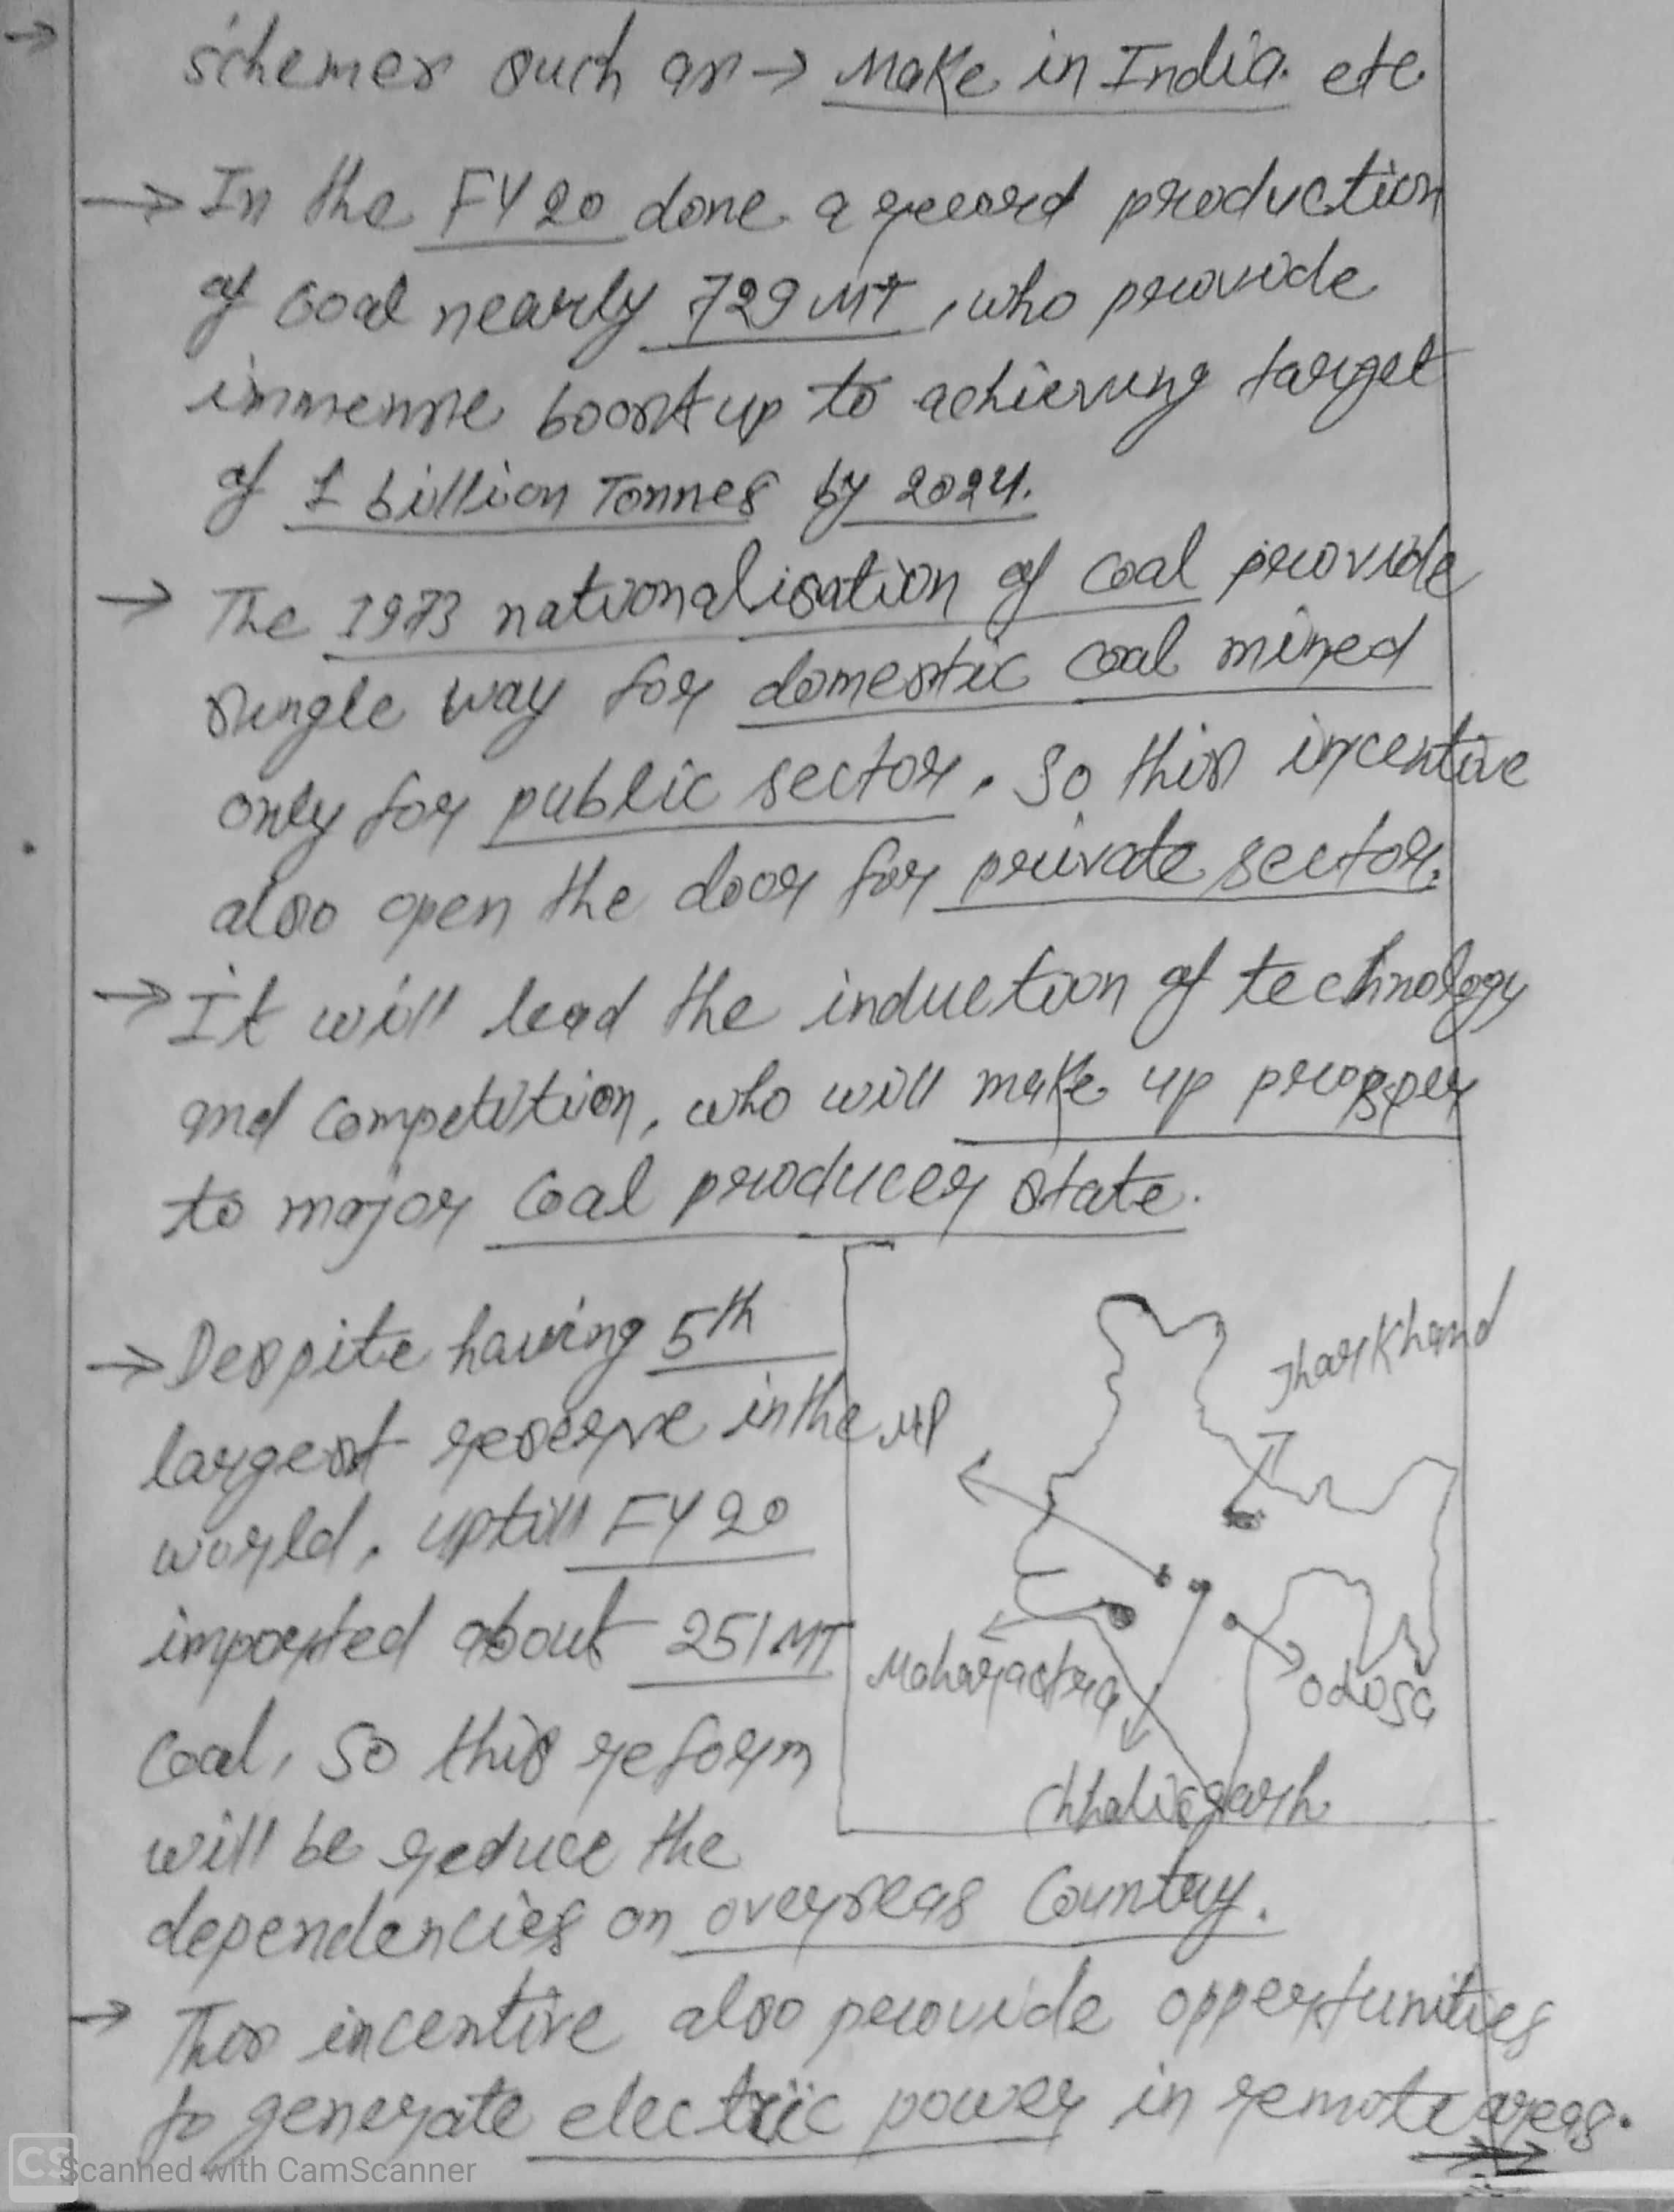 schemes such as → Make in India. etc
→ In the FY20 done a record production
of coal nearly 729 MT, who provide
immense boost up to achieving target
of 1 billion Tonnes by 2024.
→ The 1973 nationalisation of coal provide
single way for domestic coal mined
only for public sector. So this incentive
also open the door for private sector.
→ It will lead the induction of technology
and competition, who will make up prosper
to major coal producer state.
→ Despite having 5th
largest reserve in the
world, uptill FY20
imported about 251 MT
coal, so this reform
will be reduce the
dependencies on overseas Country.
Jharkhand
MP
Maharastra
Odisa
Chhatisgarh
→ This incentive also provide oppertunities
to generate electric power in remote areas.
CS Scanned with CamScanner